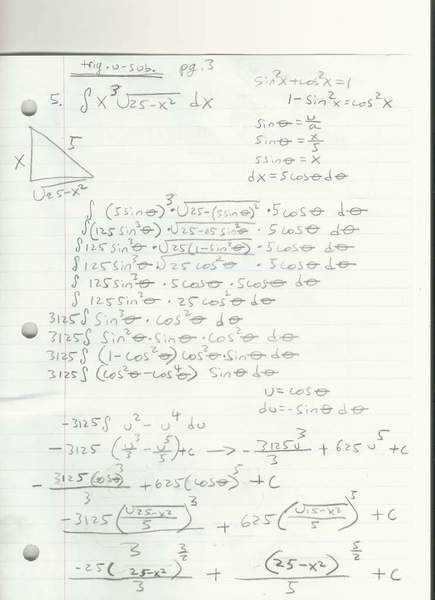 trig. u-sub. pg. 3
sin²x + cos²x = 1
5. ∫ x³ √25-x² dx
1 - sin²x = cos²x
sinθ = u/a
sinθ = x/5
5sinθ = x
dx = 5cosθ dθ
x 5
√25-x²
∫ (5sinθ)³ · √25-(5sinθ)² · 5cosθ dθ
∫(125sin³θ) · √25-25sin²θ · 5cosθ dθ
∫125sin³θ · √25(1-sin²θ) · 5cosθ dθ
∫125sin³θ · √25cos²θ · 5cosθ dθ
∫ 125sin³θ · 5cosθ · 5cosθ dθ
∫ 125sin³θ · 25cos²θ dθ
3125 ∫ sin³θ · cos²θ dθ
3125 ∫ sin²θ · sinθ · cos²θ dθ
3125 ∫ (1-cos²θ) cos²θ · sinθ dθ
3125 ∫ (cos²θ - cos⁴θ) sinθ dθ
u = cosθ
du = -sinθ dθ
-3125 ∫ u² - u⁴ du
-3125 (u³/3 - u⁵/5) + c → -3125u³/3 + 625u⁵ + c
-3125(cosθ)³/3 + 625(cosθ)⁵ + C
-3125(√25-x²/5)³/3 + 625(√25-x²/5)⁵ + C
-25(25-x²)^3/2/3 + (25-x²)^5/2/5 + C